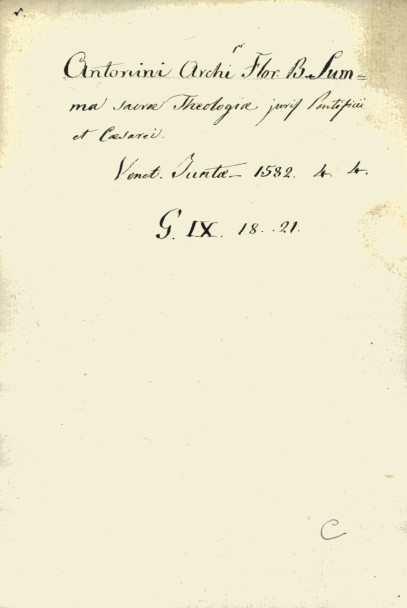 Antonini Archi^r Flor. B. Sum=
ma sacræ Theologiæ juris Pontificii
et Cæsarei.
Venet. Juntæ 1582. 4. 4.
G. IX. 18. .21.
C